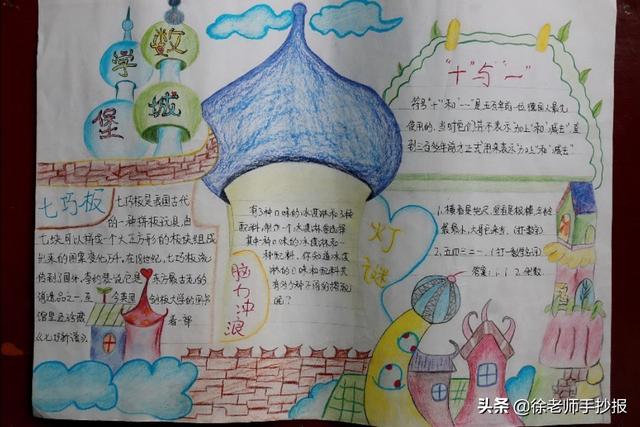 数学
城堡
七巧板
七巧板是我国古代
的一种拼板玩具,由
七块可以拼成一个大正方形的板块组成
拼出来的图案变化万千。在18世纪,七巧板流
传到了国外。李约瑟说它是东方最古老的
消遣品之一,至今英国剑桥大学的图书
馆里还珍藏着一部
《七巧新谱》。
有3种口味的冰淇淋和3种
配料,
其中一种口味的冰淇淋
一种配料。你知道冰淇
淋的口味和配料共
有多少种不同的搭配
呢?
脑力冲浪
"十"与"一"
符号"十"和"一"是五百年前一位德国人最先
使用的。当时它们并不表示"加上"和"减去"。直
到三百多年前才正式用来表示"加上"和"减去"
灯谜
1. 横看是把尺,竖看是根棒,年龄
最最小,大哥它来当。(打一数字)
2. 五四三二一。(打一数学名词)
答案:1. 1 2. 倒数
头条 @徐老师手抄报